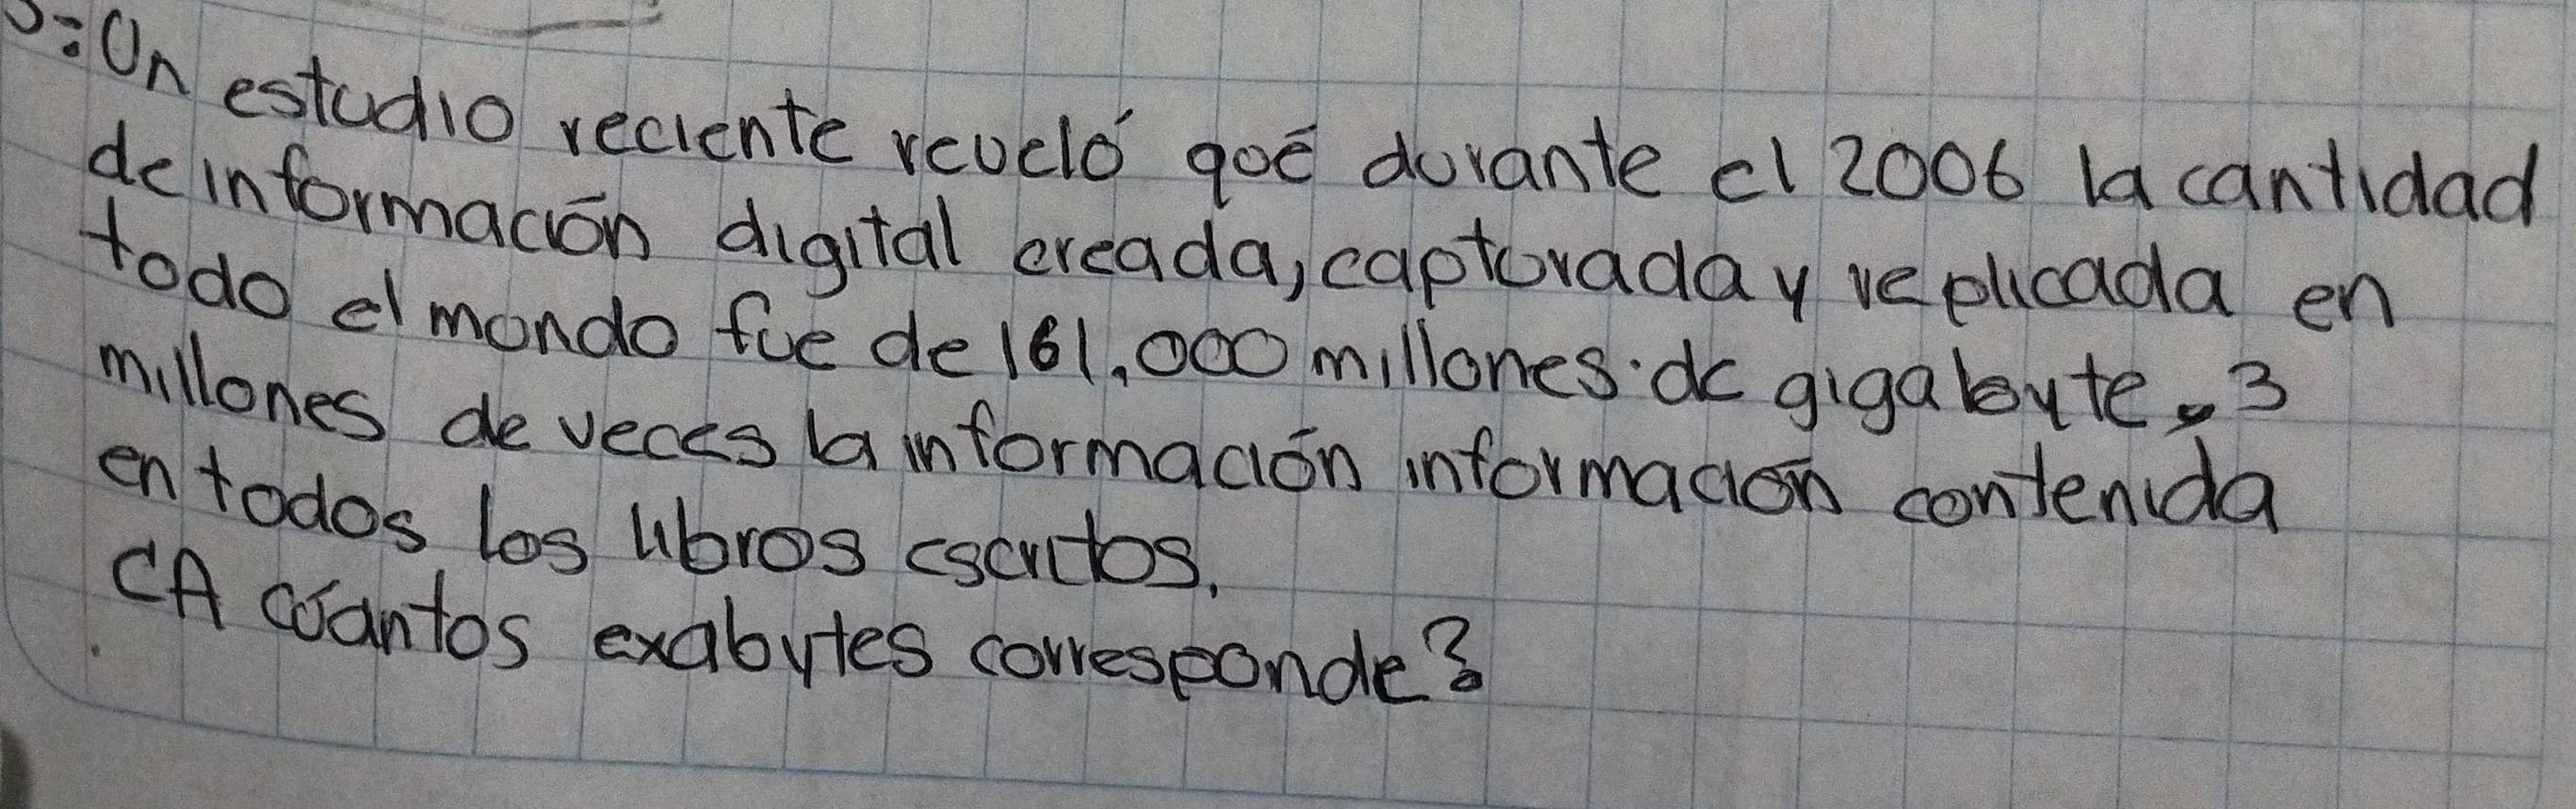 :Un estudio reciente reveló qué durante el 2006 la cantidad
de información digital creada, capturada y replicada en
todo el mondo fue de 161.000 millones de gigabyte. 3
millones de veces la información información contenida
en todos los libros escritos.
¿A cuántos exabytes corresponde?